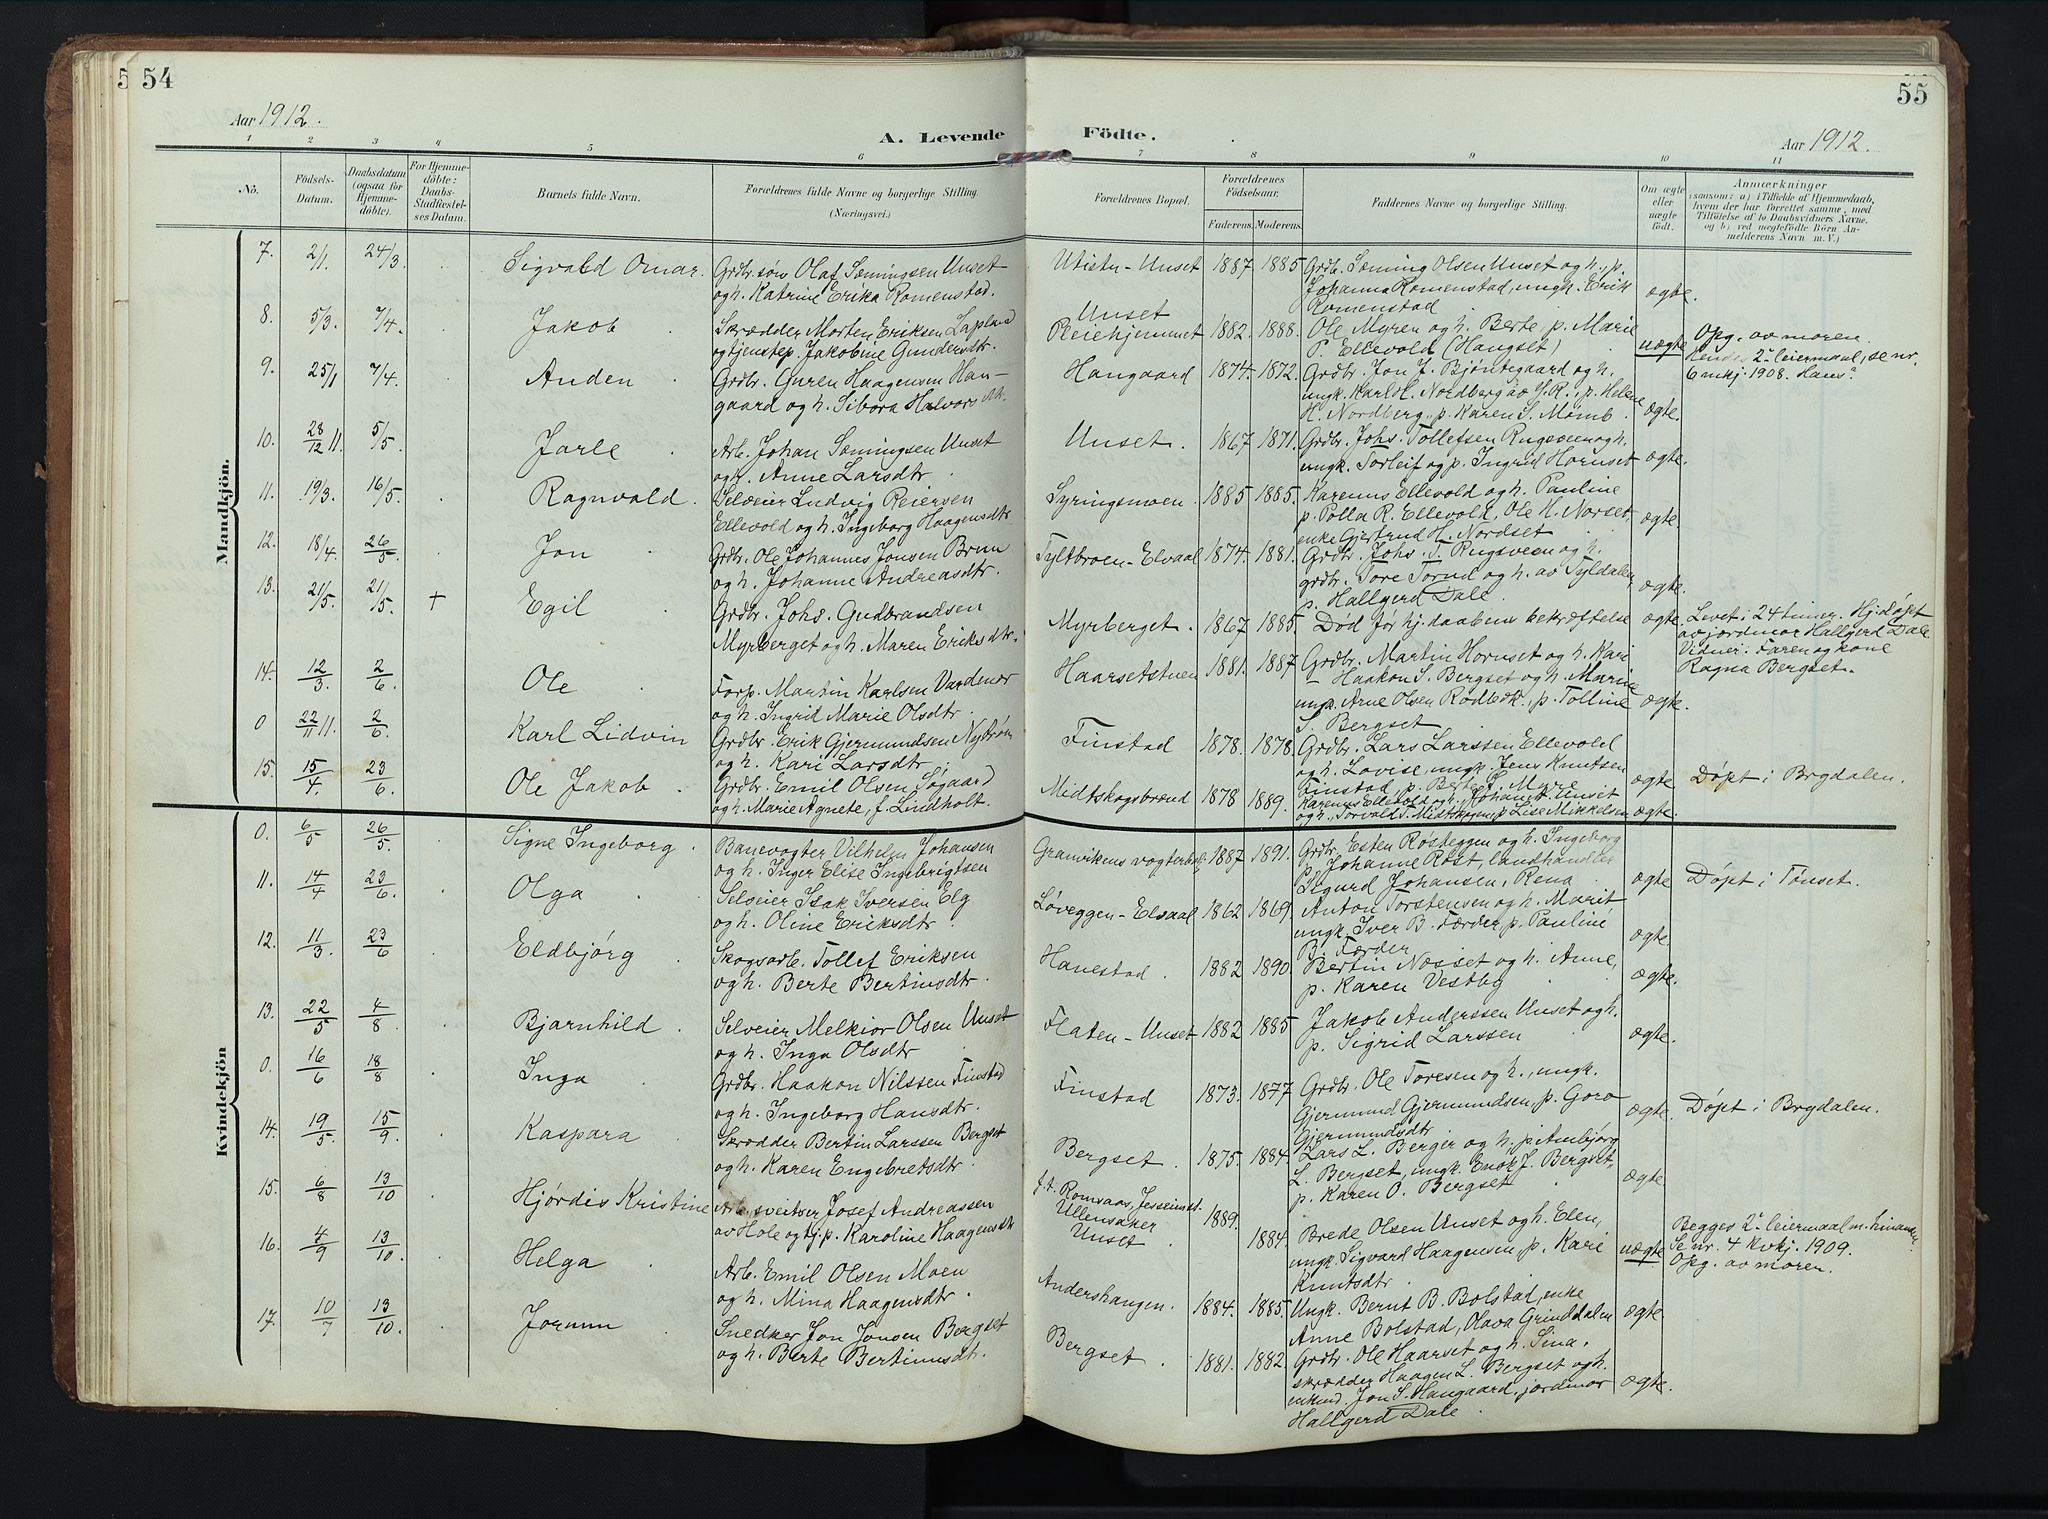 54
Aar 1912.
A. Levende
1 2 3 4 5 6
Nö.
Födsels-
Datum.
Daabsdatum
(ogsaa for
Hjemme-
döbte).
For Hjemme-
döbte:
Daabs-
Stadfæstel-
ses Datum.
Barnets fulde Navn.
Forældrenes fulde Navne og borgerlige Stilling.
(Næringsvei.)
Mandkjön.
7. 2/1. 24/3 Sigvald Omar. Grdbr.søn Olaf Sæmingsen Unset
og h. Katrine Erika Romenstad.
8. 5/3. 7/4. Jakob Skrædder Morten Eriksen Lapland
og tjenstep. Jakobine Gundersdtr.
9. 25/1 7/4. Anden Grdbr. Guren Haagensen Han-
gaard og h. Sibora Halvorsdtr.
10. 28/12 11. 5/5 Jarle Arb. Johan Sæmingsen Unset
og h. Anne Larsdtr.
11. 19/3. 16/5. Ragnvald. Selveier Ludvig Reiersen
Ellevold og h. Ingeborg Haagensdtr
12. 18/4. 26/5. Jon Grdbr. Ole Johannes Jonsen Brun
og h. Johanne Andreasdtr.
13. 21/5. 21/5. + Egil Grdbr. Johs. Gudbrandsen
Myrberget og h. Maren Eriksdtr.
14. 12/3. 2/6. Ole Forp. Martin Karlsen Vardenær
og h. Ingrid Marie Olsdtr.
0 22/11 11. 2/6. Karl Lidvin Grdbr. Erik Gjermundsen Nybrøn
og h. Kari Larsdtr.
15. 15/4. 23/6. Ole Jakob. Grdbr. Emil Olsen Søgaard
og h. Marie Agnete, f. Lindholt.
Kvindekjön
0. 6/5 26/5. Signe Ingeborg. Banevogter Vilhelm Johansen
og h. Inger Elise Ingebrigtsen
11. 14/4 23/6. Olga Selveier Isak Iversen Elg
og h. Oline Eriksdtr.
12. 11/3. 23/6 Eldbjørg Skogsarb. Tollef Eriksen
og h. Berte Bertinsdtr.
13. 22/5 4/8 Bjarnhild. Selveier Melkior Olsen Unset
og h. Inga Olsdtr
0. 16/6 18/8 Inga Grdbr. Haakon Nilssen Finstad
og h. Ingeborg Hansdtr.
14. 19/5. 15/9. Kaspara Skrædder Bertin Larssen Bergset
og h. Karen Engebretsdtr.
15. 6/8 13/10 Hjørdis Kristine Arb., sveitser Josef Andreassen
av Hole og tj.p. Karoline Haagensdtr
16. 4/9 13/10. Helga Arb. Emil Olsen Moen
og h. Mina Haagensdtr.
17. 10/7 13/10. Jorunn Snedker Jon Jonsen Bergset
og h. Berte Bertinusdtr.
55
Födte.
Aar 1912.
7 8 9 10 11
Forældrenes Bopæl.
Forældrenes
Födselsaar.
Faderens. Moderens.
Faddernes Navne og borgerlige Stilling.
Om ægte
eller
uægte
födt.
Anmærkninger
(saasom: a) i Tilfælde af Hjemmedaab,
hvem der har forrettet samme, med
Tilföielse af to Daabsvidners Navne.
og b) ved uægtefödte Börn An-
melderens Navn m. V.)
Utistu-Unset 1887 1885 Grdb. Sæming Olsen Unset og h., p.
Johanna Romenstad, ungk. Erik
Romenstad ægte.
Unset
Pleiehjemmet 1882. 1888. Ole Myren og h. Berte, p. Marie
P. Ellevold (Hangset) uægte Opg. av moren.
Hendes 2. leiermaal, se nr.
6 mkj. 1908. "Hans"
Hangaard 1874. 1872. Grdb. Jon J. Bjøntegaard og h.
ungk. Karl H. Nordberg av Y.R., p. Helene
H. Nordberg, p. Karen S. Mømb. ægte.
Unset. 1867 1871. Grdbr. Johs. Tollefsen Rugsveen og h.
ungk. Torleif og p. Ingrid Hornset ægte.
Syringsmoen. 1885 1885. Karenus Ellevold og h. Pauline
p. Polla R. Ellevold, Ole H. Norset,
enke Gjertrud H. Nordset ægte.
Tyltbroen-Elvaal 1874. 1881. Grdbr. Johs. T. Rugsveen og h.
grdbr. Tore Torud og h. av Tyldalen,
p. Hallgerd Dale. ægte.
Myrberget. 1867 1885. Død før hj.daabens bekræftelse ægte. Levet i 24 timer. Hj.døpt
av jordmor Hallgerd Dale
Vidner: Faren og kone
Ragna Bergset.
Haarsetstuen 1881. 1887 Grdbr. Martin Hornset og h. Kari
Haakon S. Bergset og h. Marine
ungk. Arne Olsen Rødbæk, p. Tolline
S. Bergset ægte.
Finstad 1878. 1878. Grdbr. Lars Larssen Ellevold
og h. Lovise, ungk. Jens Knutsen
Finstad, p. Berte L. Myre ægte Døpt i Brydalen.
Midtskogsbrænd 1878 1889. Karenus Ellevold og h., Johan T. Unset
og h., Torvald T. Midtskogen, p. Lise Mikkelsen ægte.
Granvikens vogterbol. 1887 1891. Grdbr. Esten Røsteggen og h. Ingeborg
P. Johanne Røst, landhandler
Sigurd Johansen, Rena ægte Døpt i Tønset.
Løveggen-Elvaal 1862 1869. Anton Torstensen og h. Marit
ungk. Iver B. Færder, p. Pauline
B. Færder ægte.
Hanestad. 1882 1890. Bertin Nosset og h. Anne,
p. Karen Vestby ægte.
Flaten-Unset 1882 1885 Jakob Anderssen Unset og h.
p. Sigrid Larssen ægte.
Finstad 1873. 1877 Grdbr. Ole Toresen og h., ungk.
Gjermund Gjermundsen, p. Goro
Gjermundsdtr ægte. Døpt i Brydalen.
Bergset. 1875. 1884. Lars L. Berger og h., p. Ambjørg
L. Bergset, ungk. Enok J. Bergset,
p. Karen O. Bergset ægte.
Ullensaker
Unset. 1889. 1884. Brede Olsen Unset og h. Elen,
ungk. Sigvard Haagensen, p. Kari
Knutsdtr. uægte Begges 2. leiermaal m. hinanden.
Se nr. 4 kvkj. 1909.
Opg. av moren.
Andershangen. 1884. 1885. Ungk. Bernt B. Bolstad, enke
Anne Bolstad, Olava Grinddalen ægte.
Bergset. 1881. 1882. Grdbr. Ole Haarset og h. Sina,
skrædder Haagen L. Bergset og h.
enkmd. Jon S. Hangaard, jordmor
Hallgerd Dale. ægte.